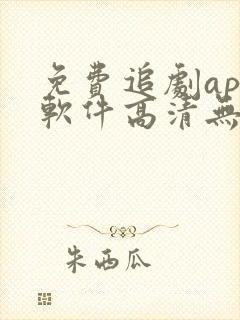 免費追劇ap
軟件高清無
朱西瓜